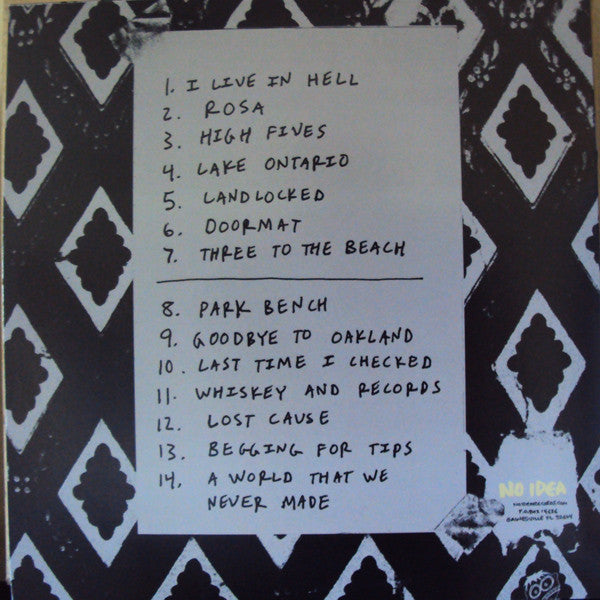 1. I LIVE IN HELL
2. ROSA
3. HIGH FIVES
4. LAKE ONTARIO
5. LANDLOCKED
6. DOORMAT
7. THREE TO THE BEACH
8. PARK BENCH
9. GOODBYE TO OAKLAND
10. LAST TIME I CHECKED
11. WHISKEY AND RECORDS
12. LOST CAUSE
13. BEGGING FOR TIPS
14. A WORLD THAT WE
NEVER MADE
NO IDEA
P.O. BOX 14636
GAINESVILLE FL 32604